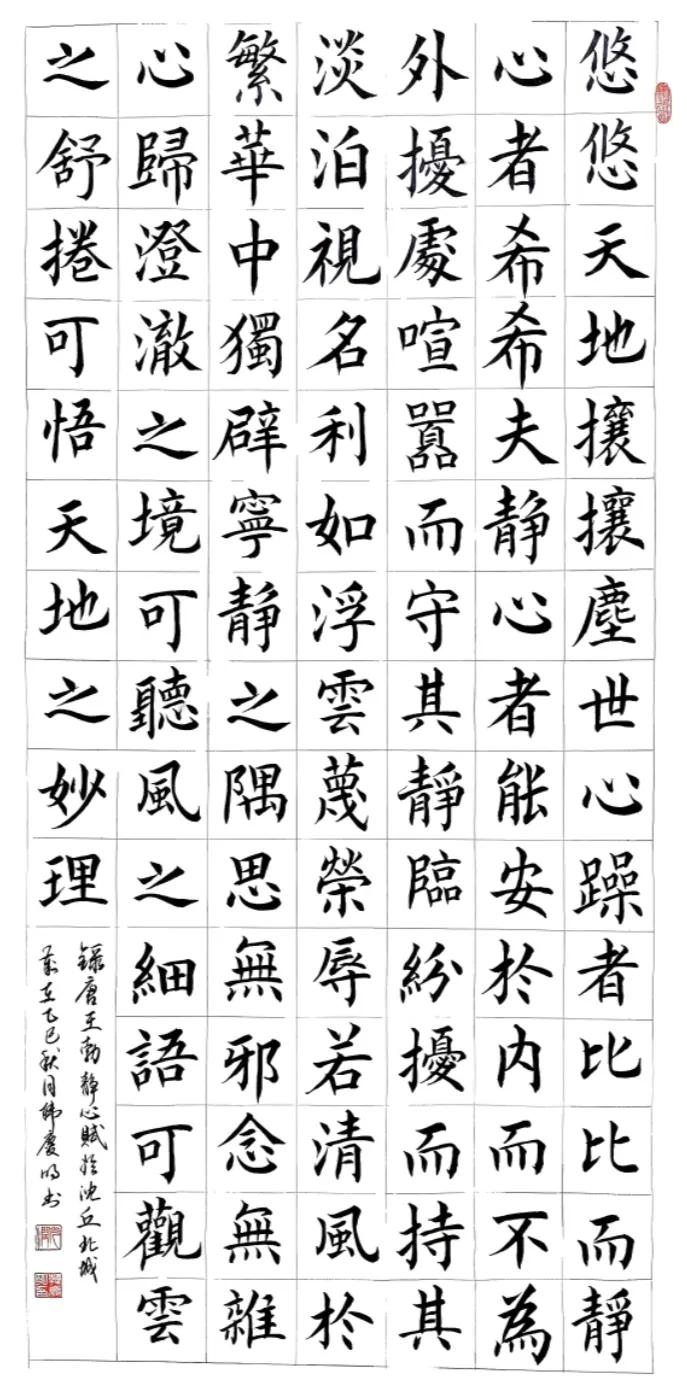 悠悠天地攘攘塵世心躁者比比而静
心者希希夫静心者能安於内而不為
外擾處喧囂而守其靜臨紛擾而持其
淡泊視名利如浮雲蔑榮辱若清風於
繁華中獨辟寧静之隅思無邪念無雜
心歸澄澈之境可聽風之細語可觀雲
之舒捲可悟天地之妙理
錄唐王勃静心賦於沈丘北城
歲在乙巳秋月韩慶明书